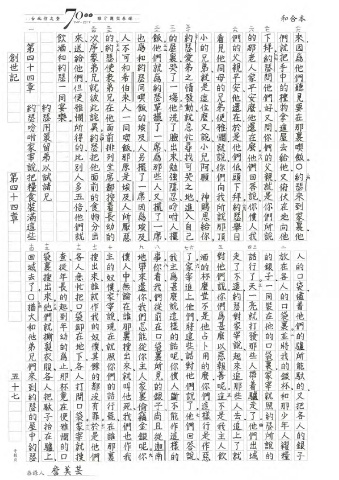 和合本
70
來因為他們聽見要在那裏喫飯約瑟來到家裏他
們就把手中的禮物拿進屋去給他又俯伏在地向他
下拜約瑟問他們好又問你們的父親就是你們所說
的那老人家平安麼他還在麼他們回答說你僕人我
們的父親平安他還在於是他們低頭下拜約瑟舉目
看見他同母的兄弟便雅憫就說你們向我所說那頂
小的兄弟就是這位麼又說小兒阿願 神賜恩給你
約瑟愛弟之情發動就急忙尋找可哭之地進入自己
的屋裏哭了一場他洗了臉出來勉強隱忍吩咐人擺
飯他們就為約瑟單擺了一席為那些人又擺了一席
也為和約瑟同喫飯的埃及人另擺了一席因為埃及
人不可和希伯來人一同喫飯那原是埃及人所厭惡
的約瑟使眾弟兄在他面前排列坐席都按着長幼的
次序眾弟兄就彼此詫異約瑟把他面前的食物分出
來送給他們但便雅憫所得的比別人多五倍他們就
飲酒和約瑟一同宴樂
約瑟用策留弟以試諸兄
第四十四章 約瑟吩咐家宰說把糧食裝滿這些
人的口袋儘着他們的驢所能馱的又把各人的銀子
放在各人的口袋裏並將我的銀杯和那少年人糴糧
的銀子一同裝在他的口袋裏家宰就照約瑟所說的
話行了天一亮就打發那些人帶着驢走了他們出城
走了不遠約瑟對家宰說起來追那些人去追上了就
對他們說你們為甚麼以惡報善呢這不是我主人飲
酒的杯麼豈不是他占卜用的麼你們這樣行是作惡
了家宰追上他們將這些話對他們說了他們回答說
我主為甚麼說這樣的話呢你僕人斷不能作這樣的
事你看我們從前在口袋裏所見的銀子尚且從迦南
地帶來還你我們怎能從你主人家裏偷竊金銀呢你
僕人中無論在誰那裏搜出來就叫他死我們也作我
主的奴僕家宰說現在就照你們的話行罷在誰那裏
搜出來誰就作我的奴僕其餘的都沒有罪於是他們
各人急忙把口袋卸在地下各人打開口袋家宰就搜
查從年長的起到年幼的為止那杯竟在便雅憫的口
袋裏搜出來他們就撕裂衣服各人把馱子抬在驢上
回城去了猶大和他弟兄們來到約瑟的屋中約瑟
創世記 第四十四章 五十七